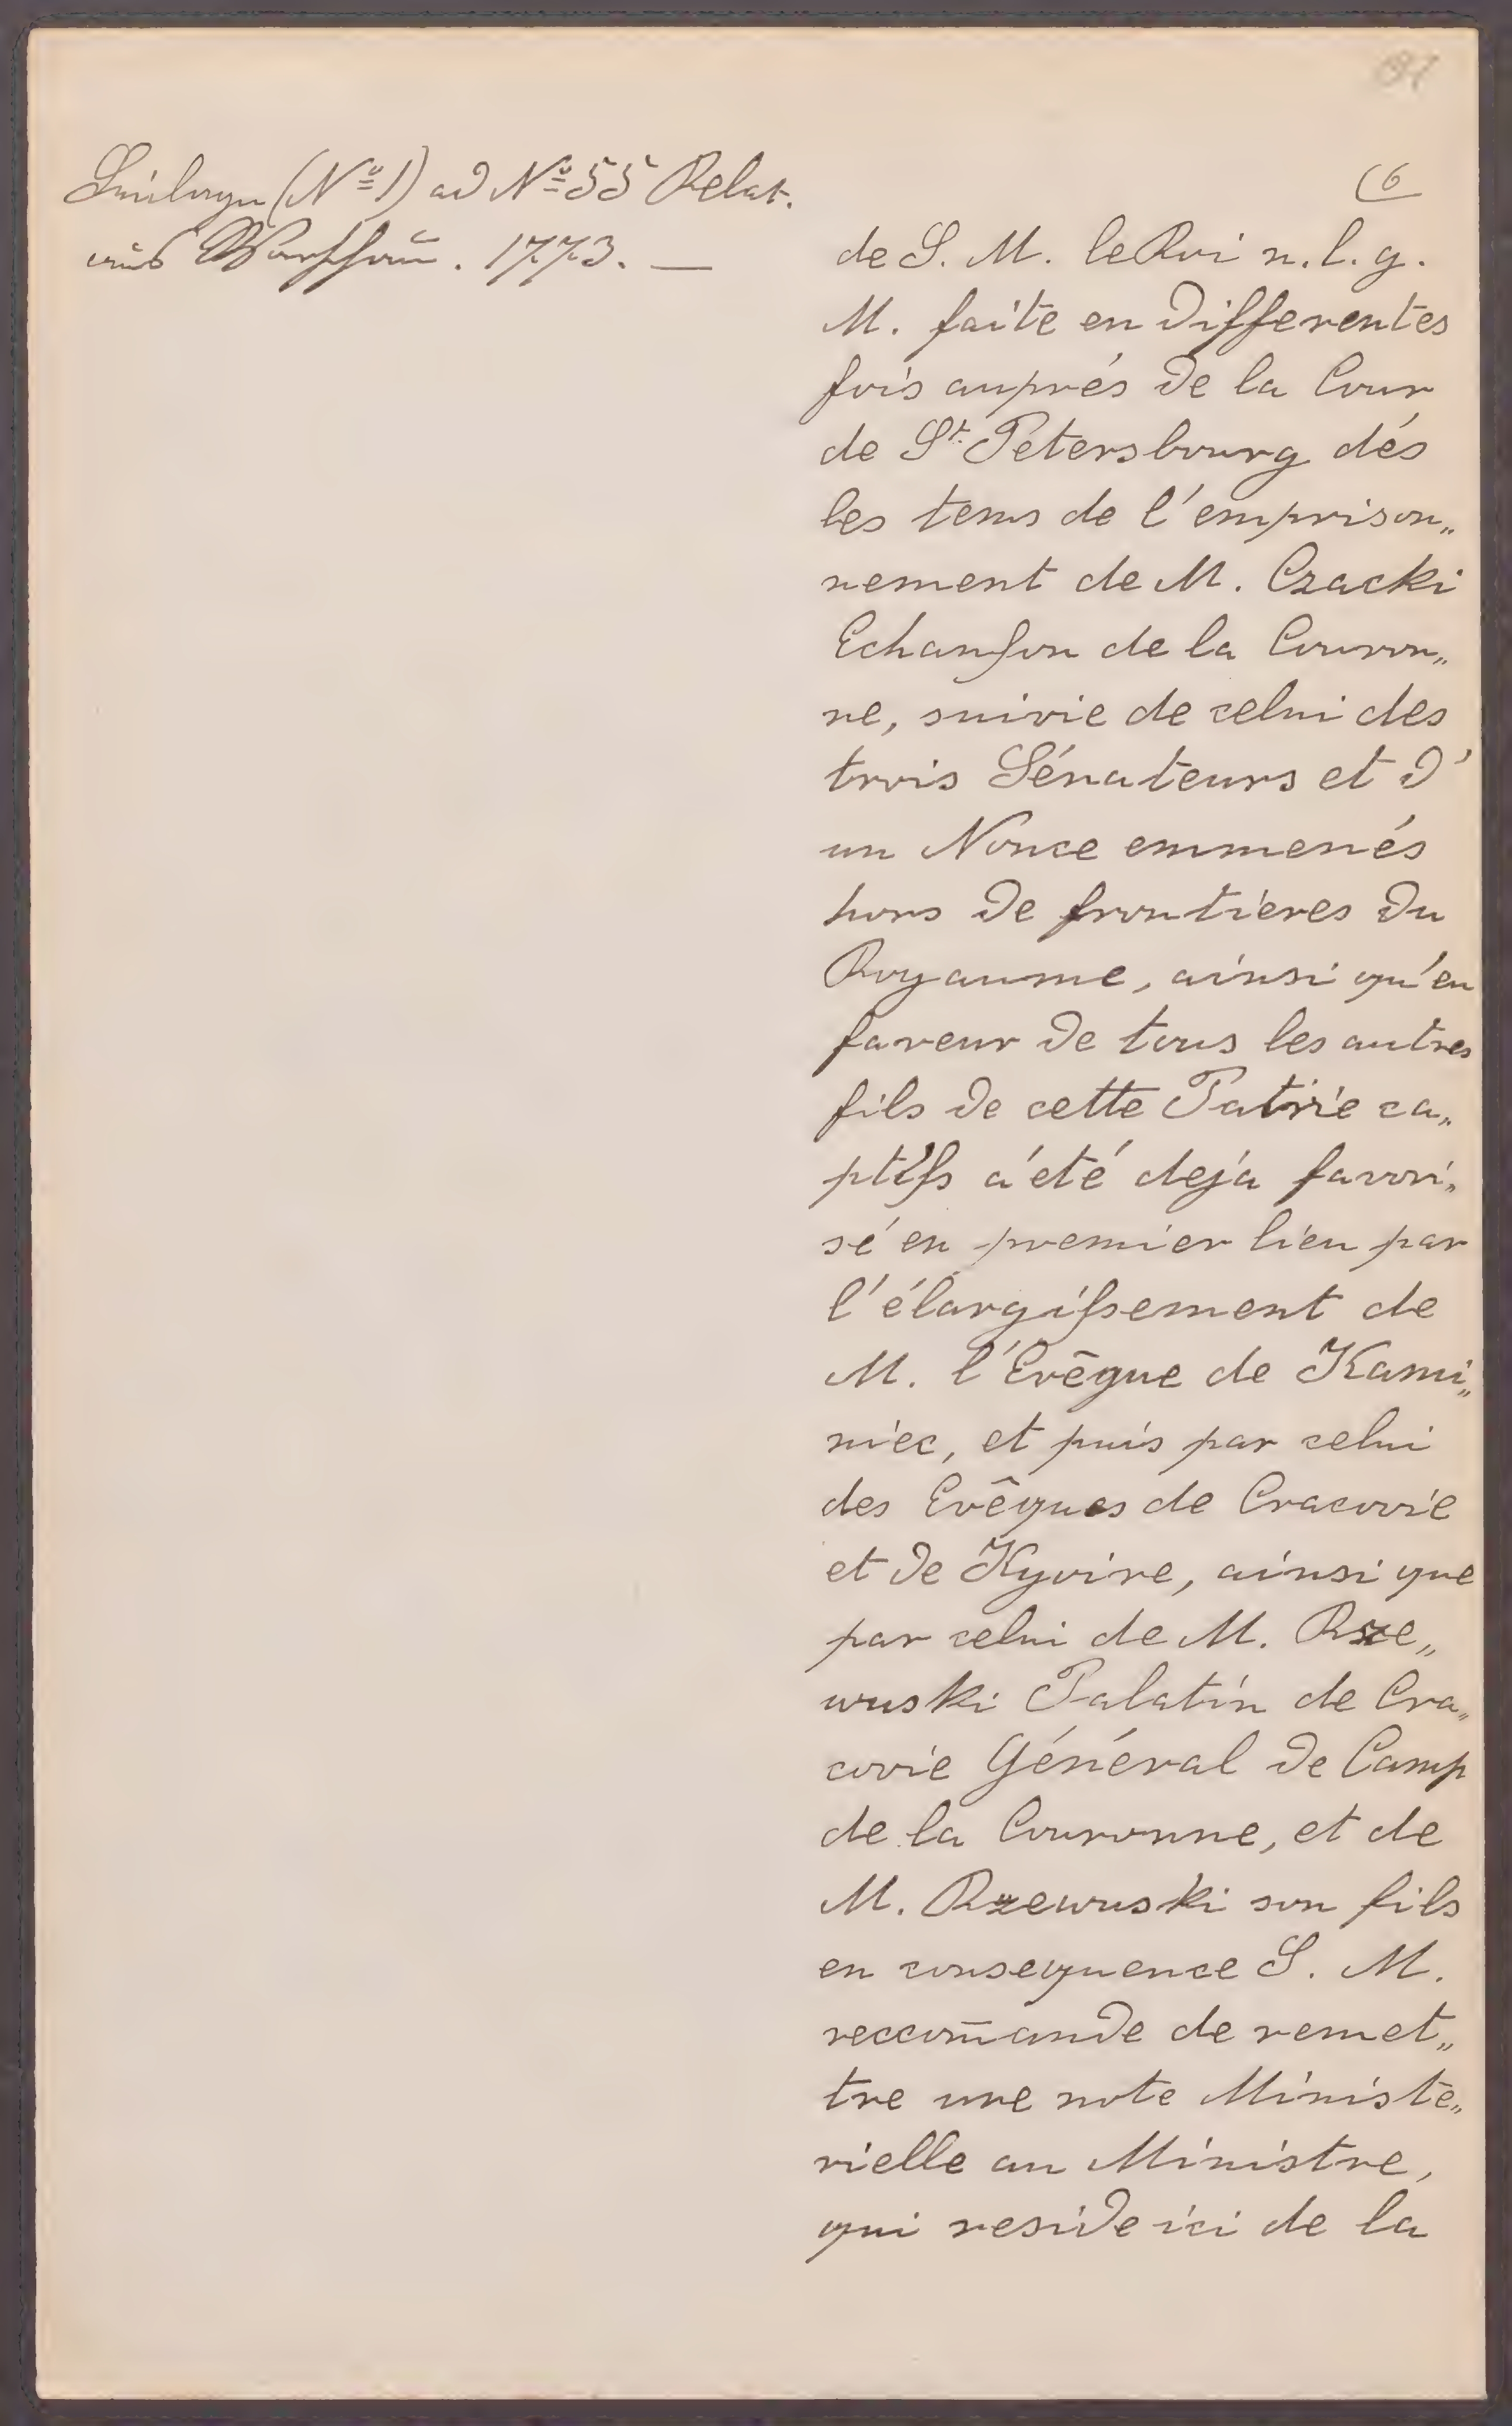 Beilage (Nº 1) ad Nº 55 Relat.
aus Warschau. 1773. —
(6
de S. M. le Roi n. l. g.
M. faite en differentes
fois auprés de la Cour
de St. Petersbourg dés
les tems de l'emprison„
nement de M. Czacki
Echanson de la Couron„
ne, suivie de celui des
trois Sénateurs et d'
un Nonce emmenés
hors de frontieres du
Royaume, ainsi qu'en
faveur de tous les autres
fils de cette Patrie ca„
ptifs a été deja favori„
sé en premier lieu par
l'élargissement de
M. l'Evêque de Kami„
niec, et puis par celui
des Evêques de Cracovie
et de Kyovie, ainsi que
par celui de M. Rze„
wuski Palatin de Cra„
covie Général de Camp
de la Couronne, et de
M. Rzewuski son fils
en consequence S. M.
reccom̄ande de remet„
tre une note Ministe„
rielle au Ministre,
qui reside ici de la